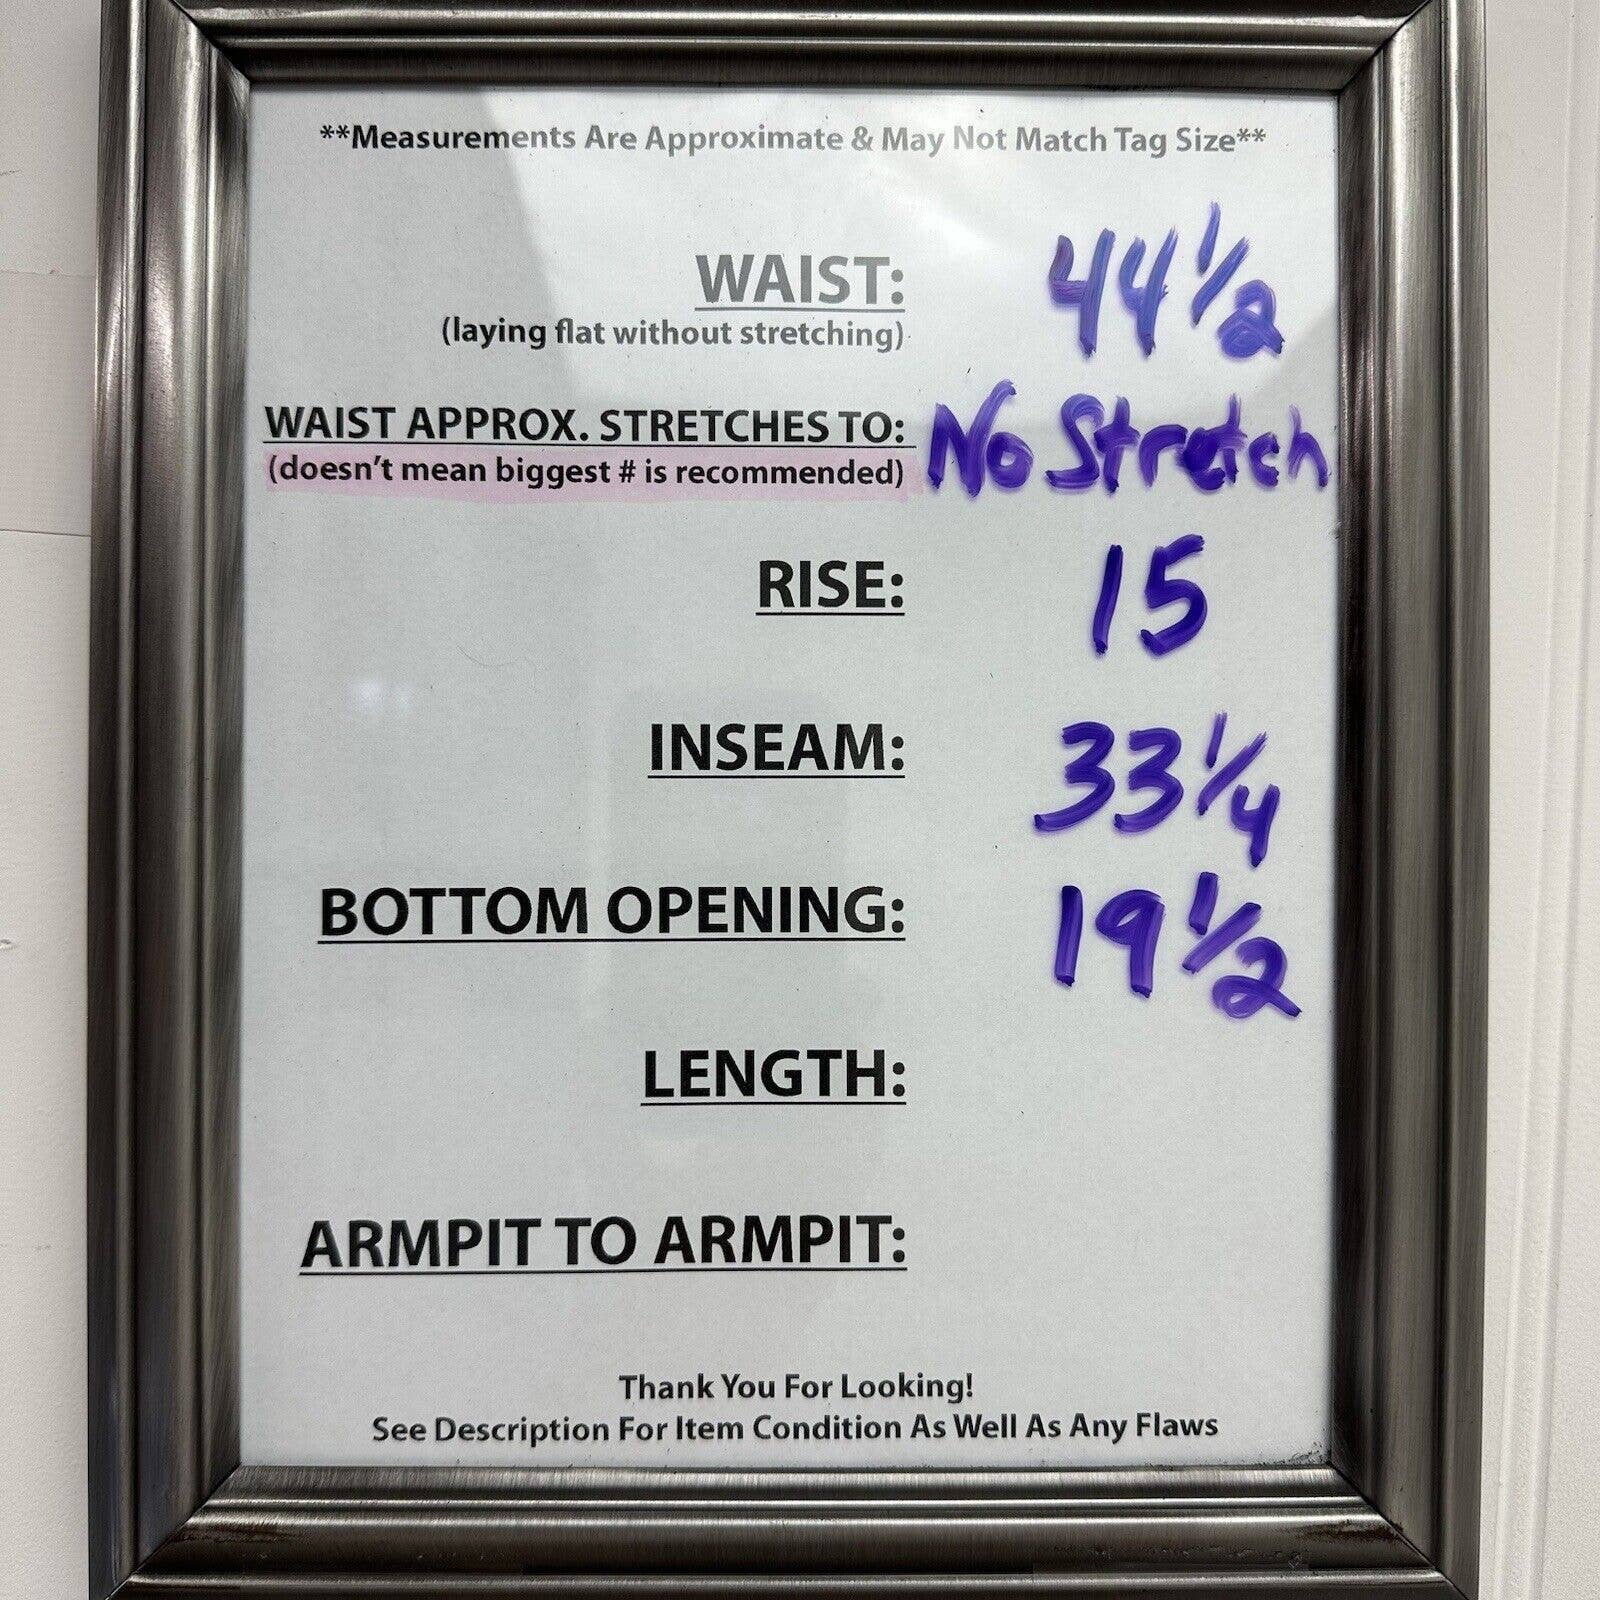 **Measurements Are Approximate & May Not Match Tag Size**
WAIST: 44 1/2
(laying flat without stretching)
WAIST APPROX. STRETCHES TO: No Stretch
(doesn't mean biggest # is recommended)
RISE: 15
INSEAM: 33 1/4
BOTTOM OPENING: 19 1/2
LENGTH:
ARMPIT TO ARMPIT:
Thank You For Looking!
See Description For Item Condition As Well As Any Flaws